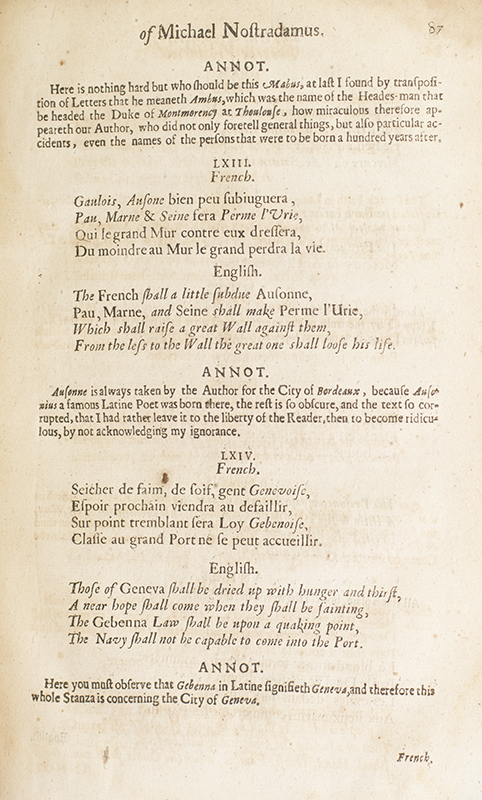 of Michael Noſtradamus. 87
ANNOT.
Here is nothing hard but who ſhould be this Mabus, at laſt I found by tranſpoſi-
tion of Letters that he meaneth Ambus, which was the name of the Heades-man that
be headed the Duke of Montmorency at Thoulouſe, how miraculous therefore ap-
peareth our Author, who did not only foretell general things, but alſo particular ac-
cidents, even the names of the perſons that were to be born a hundred years after.
LXIII.
French.
Gaulois, Auſone bien peu ſubiuguera,
Pau, Marne & Seine ſera Perme l'Vrie,
Qui le grand Mur contre eux dreſſera,
Du moindre au Mur le grand perdra la vie.
Engliſh.
The French ſhall a little ſubdue Auſonne,
Pau, Marne, and Seine ſhall make Perme l'Urie,
Which ſhall raiſe a great Wall againſt them,
From the leſs to the Wall the great one ſhall looſe his life.
ANNOT.
Auſonne is always taken by the Author for the City of Bordeaux, becauſe Auſo-
nius a famous Latine Poet was born there, the reſt is ſo obſcure, and the text ſo cor-
rupted, that I had rather leave it to the liberty of the Reader, then to become ridicu-
lous, by not acknowledging my ignorance.
LXIV.
French.
Seicher de faim, de ſoif, gent Genevoiſe,
Eſpoir prochain viendra au defaillir,
Sur point tremblant ſera Loy Gebenoiſe,
Claſſe au grand Port ne ſe peut accueillir.
Engliſh.
Thoſe of Geneva ſhall be dried up with hunger and thirſt,
A near hope ſhall come when they ſhall be fainting,
The Gebenna Law ſhall be upon a quaking point,
The Navy ſhall not be capable to come into the Port.
ANNOT.
Here you muſt obſerve that Gebenna in Latine ſignifieth Geneva, and therefore this
whole Stanza is concerning the City of Geneva.
French.